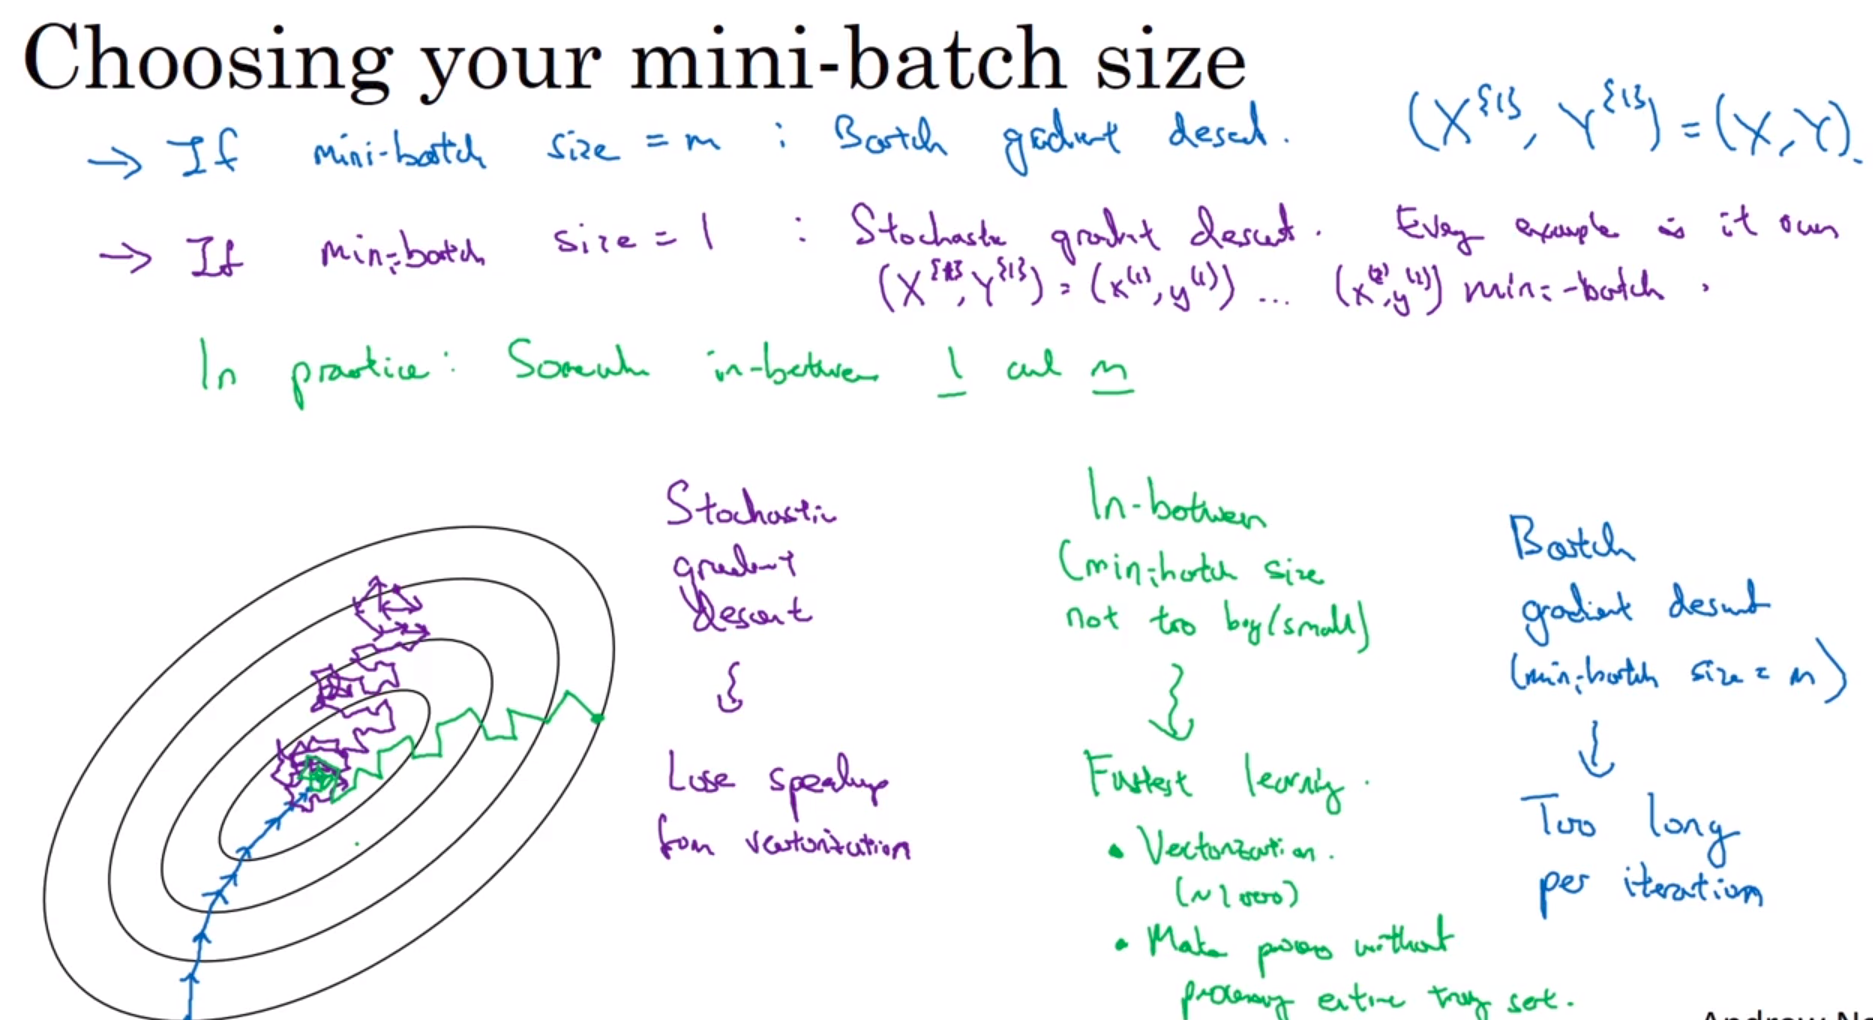 Choosing your mini-batch size
→ If mini-batch size = m : Batch gradient descent. (X^{1}, Y^{1}) = (X, Y).
→ If mini-batch size = 1 : Stochastic gradient descent. Every example is it own
(X^{1}, Y^{1}) = (x^(1), y^(1)) ... (x^(2), y^(2)) mini-batch.
In practice: Somewhere in-between 1 and m
Stochastic
gradient
descent
Lose speedup
from vectorization
In-between
(mini-batch size
not too big/small)
Fastest learning.
• Vectorization.
(~1000)
• Make progress without
processing entire training set.
Batch
gradient descent
(mini-batch size = m)
Too long
per iteration
Andrew